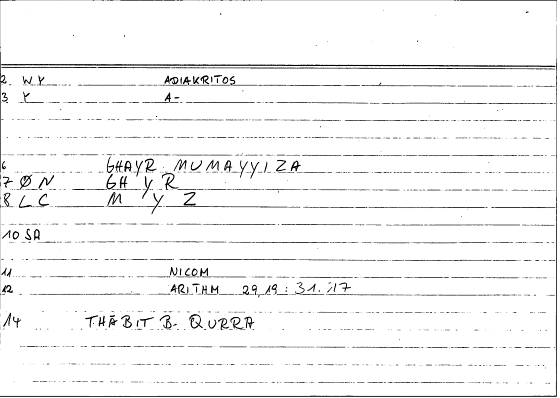 2 WY ADIAKRITOS
3 Y A-
6 GHAYR MUMAYYIZA
7 ØN GH Y R
8 LC M Y Z
10 SA
11 NICOM
12 ARITHM 29,19 : 31.17
14 THĀBIT B. QURRA